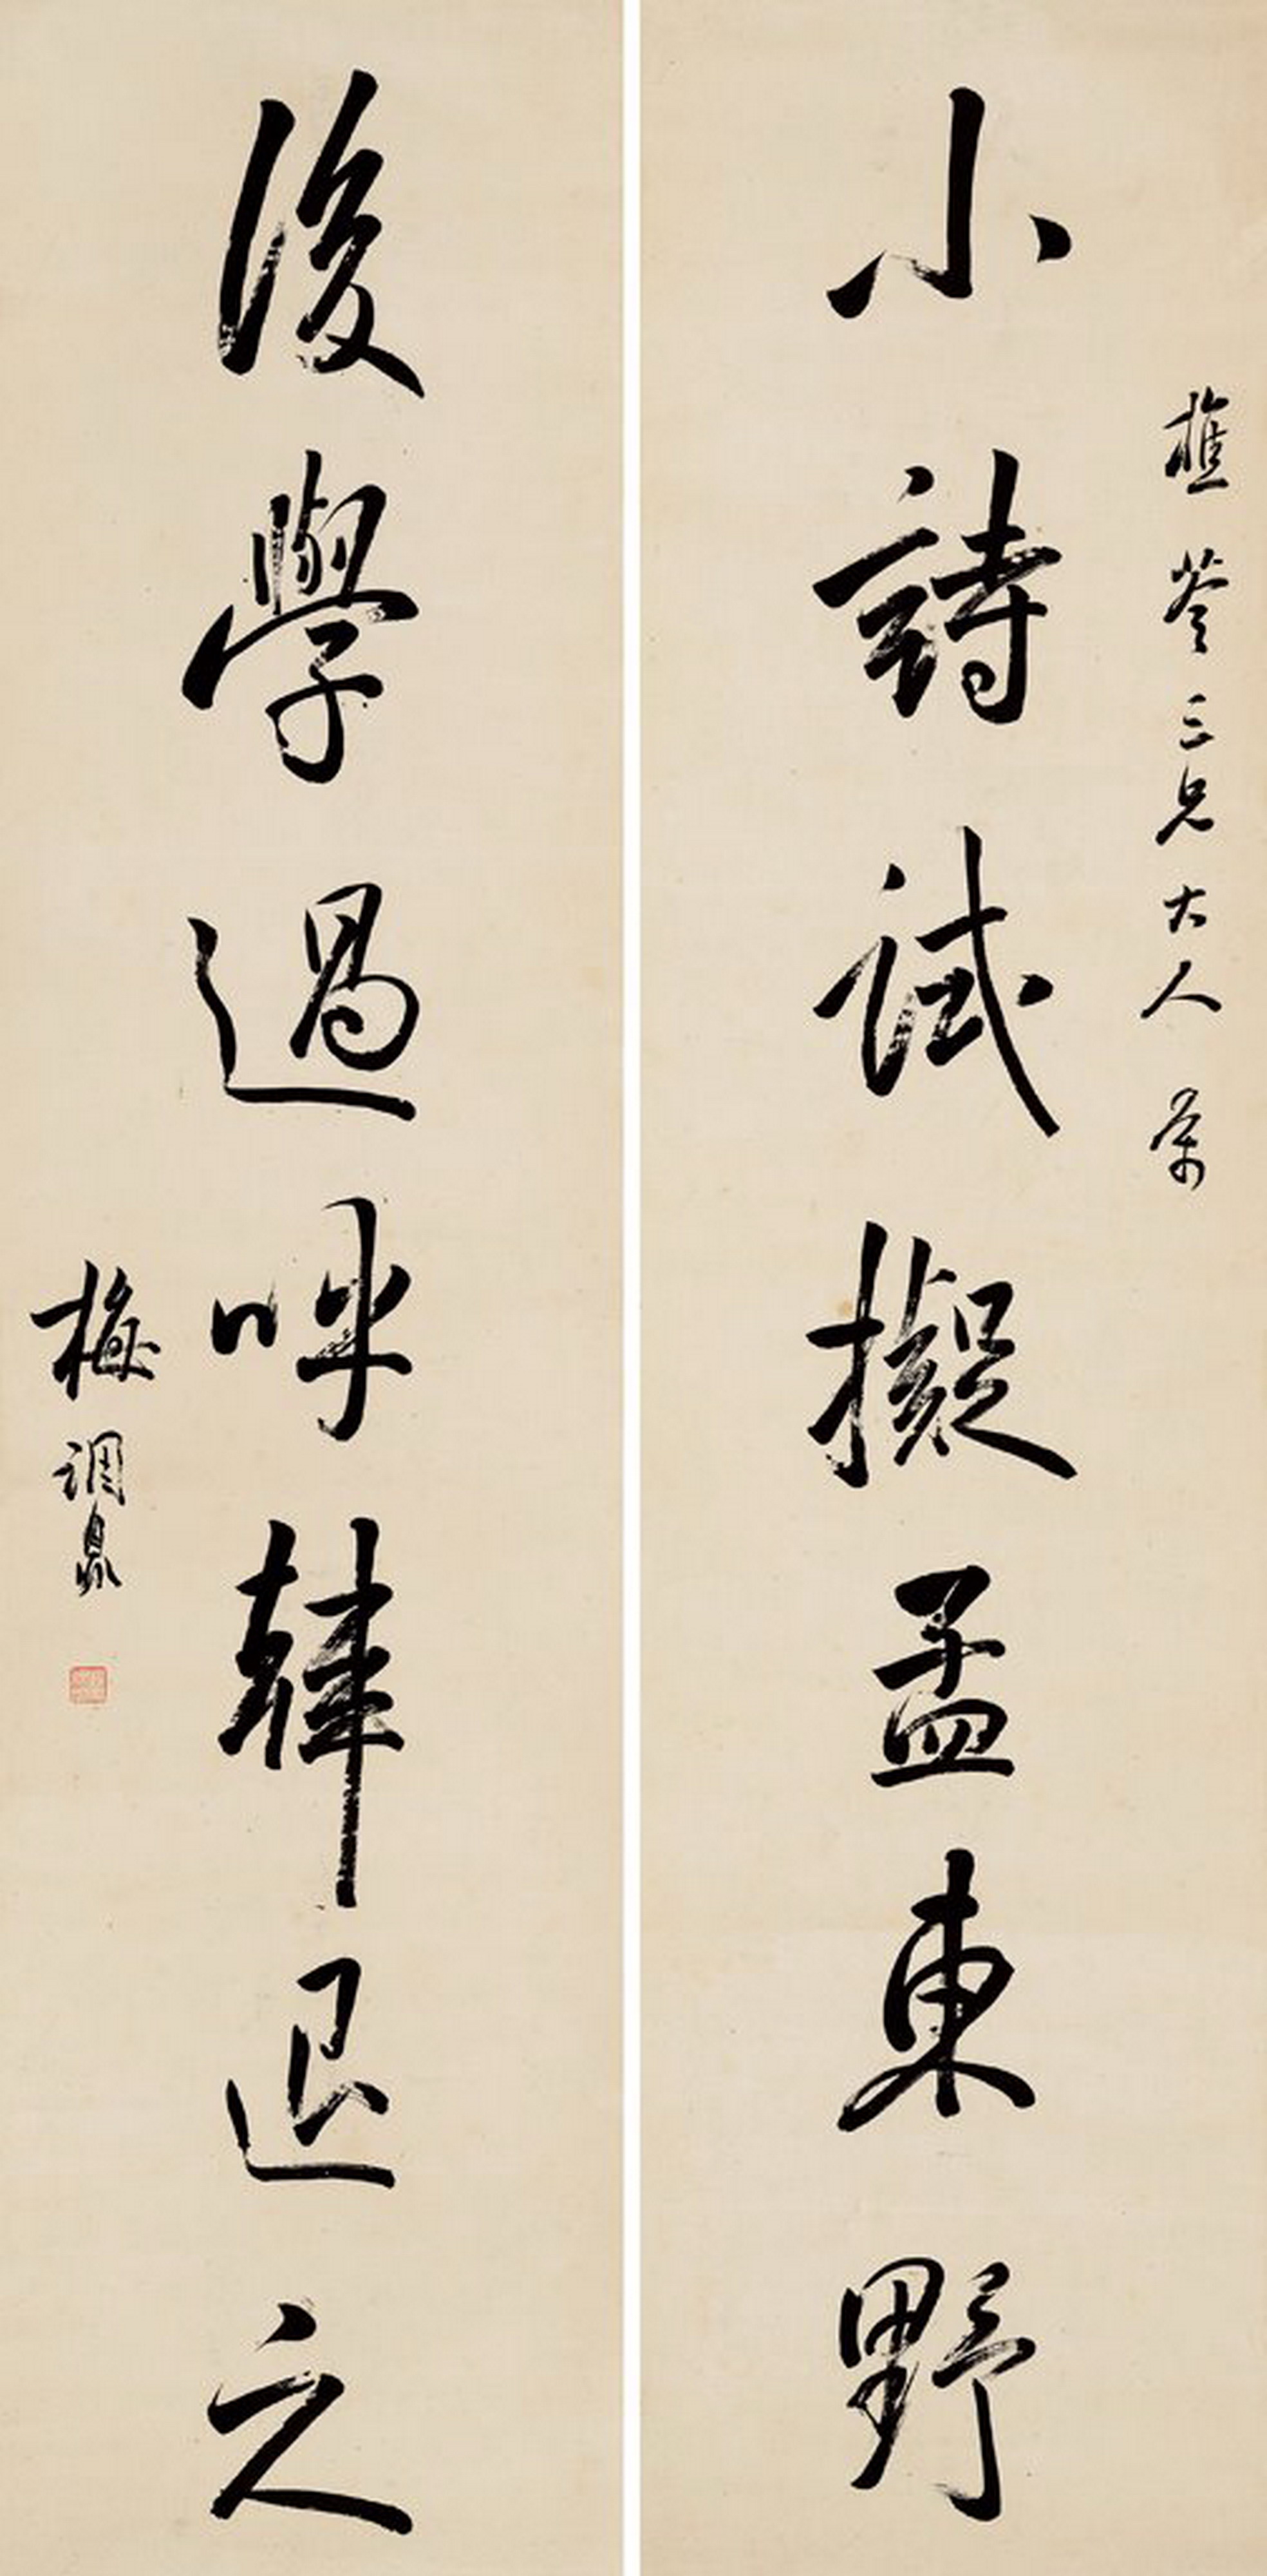 樵苓三兄大人属
小詩試擬孟東野
後學過呼韓退之
梅調鼎